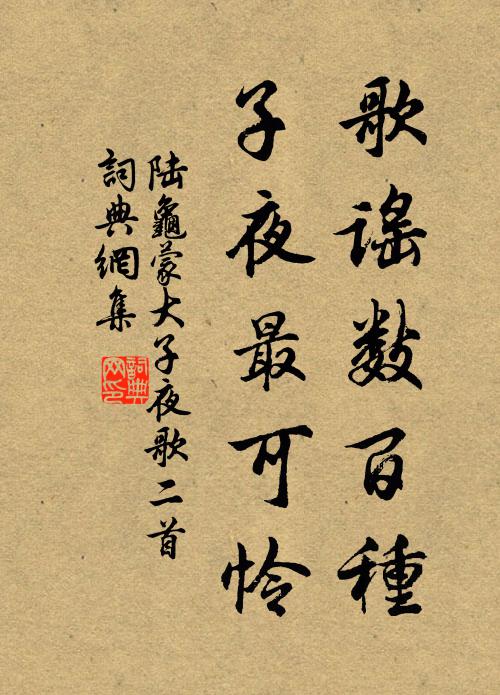 歌謠數百種
子夜最可怜
陆龜蒙大子夜歌二首
詞典網集
詞典
网印